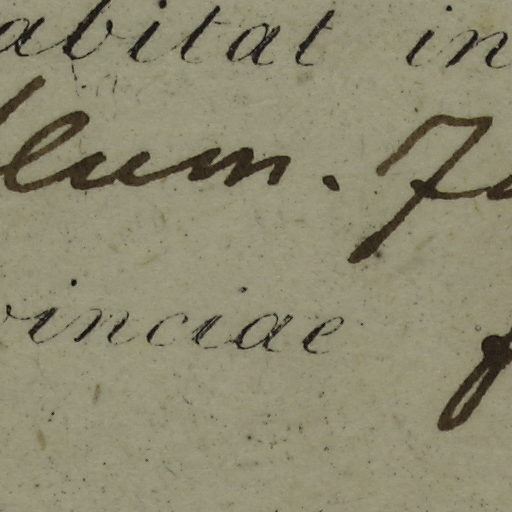 abitat in
lum. 7
vinciae